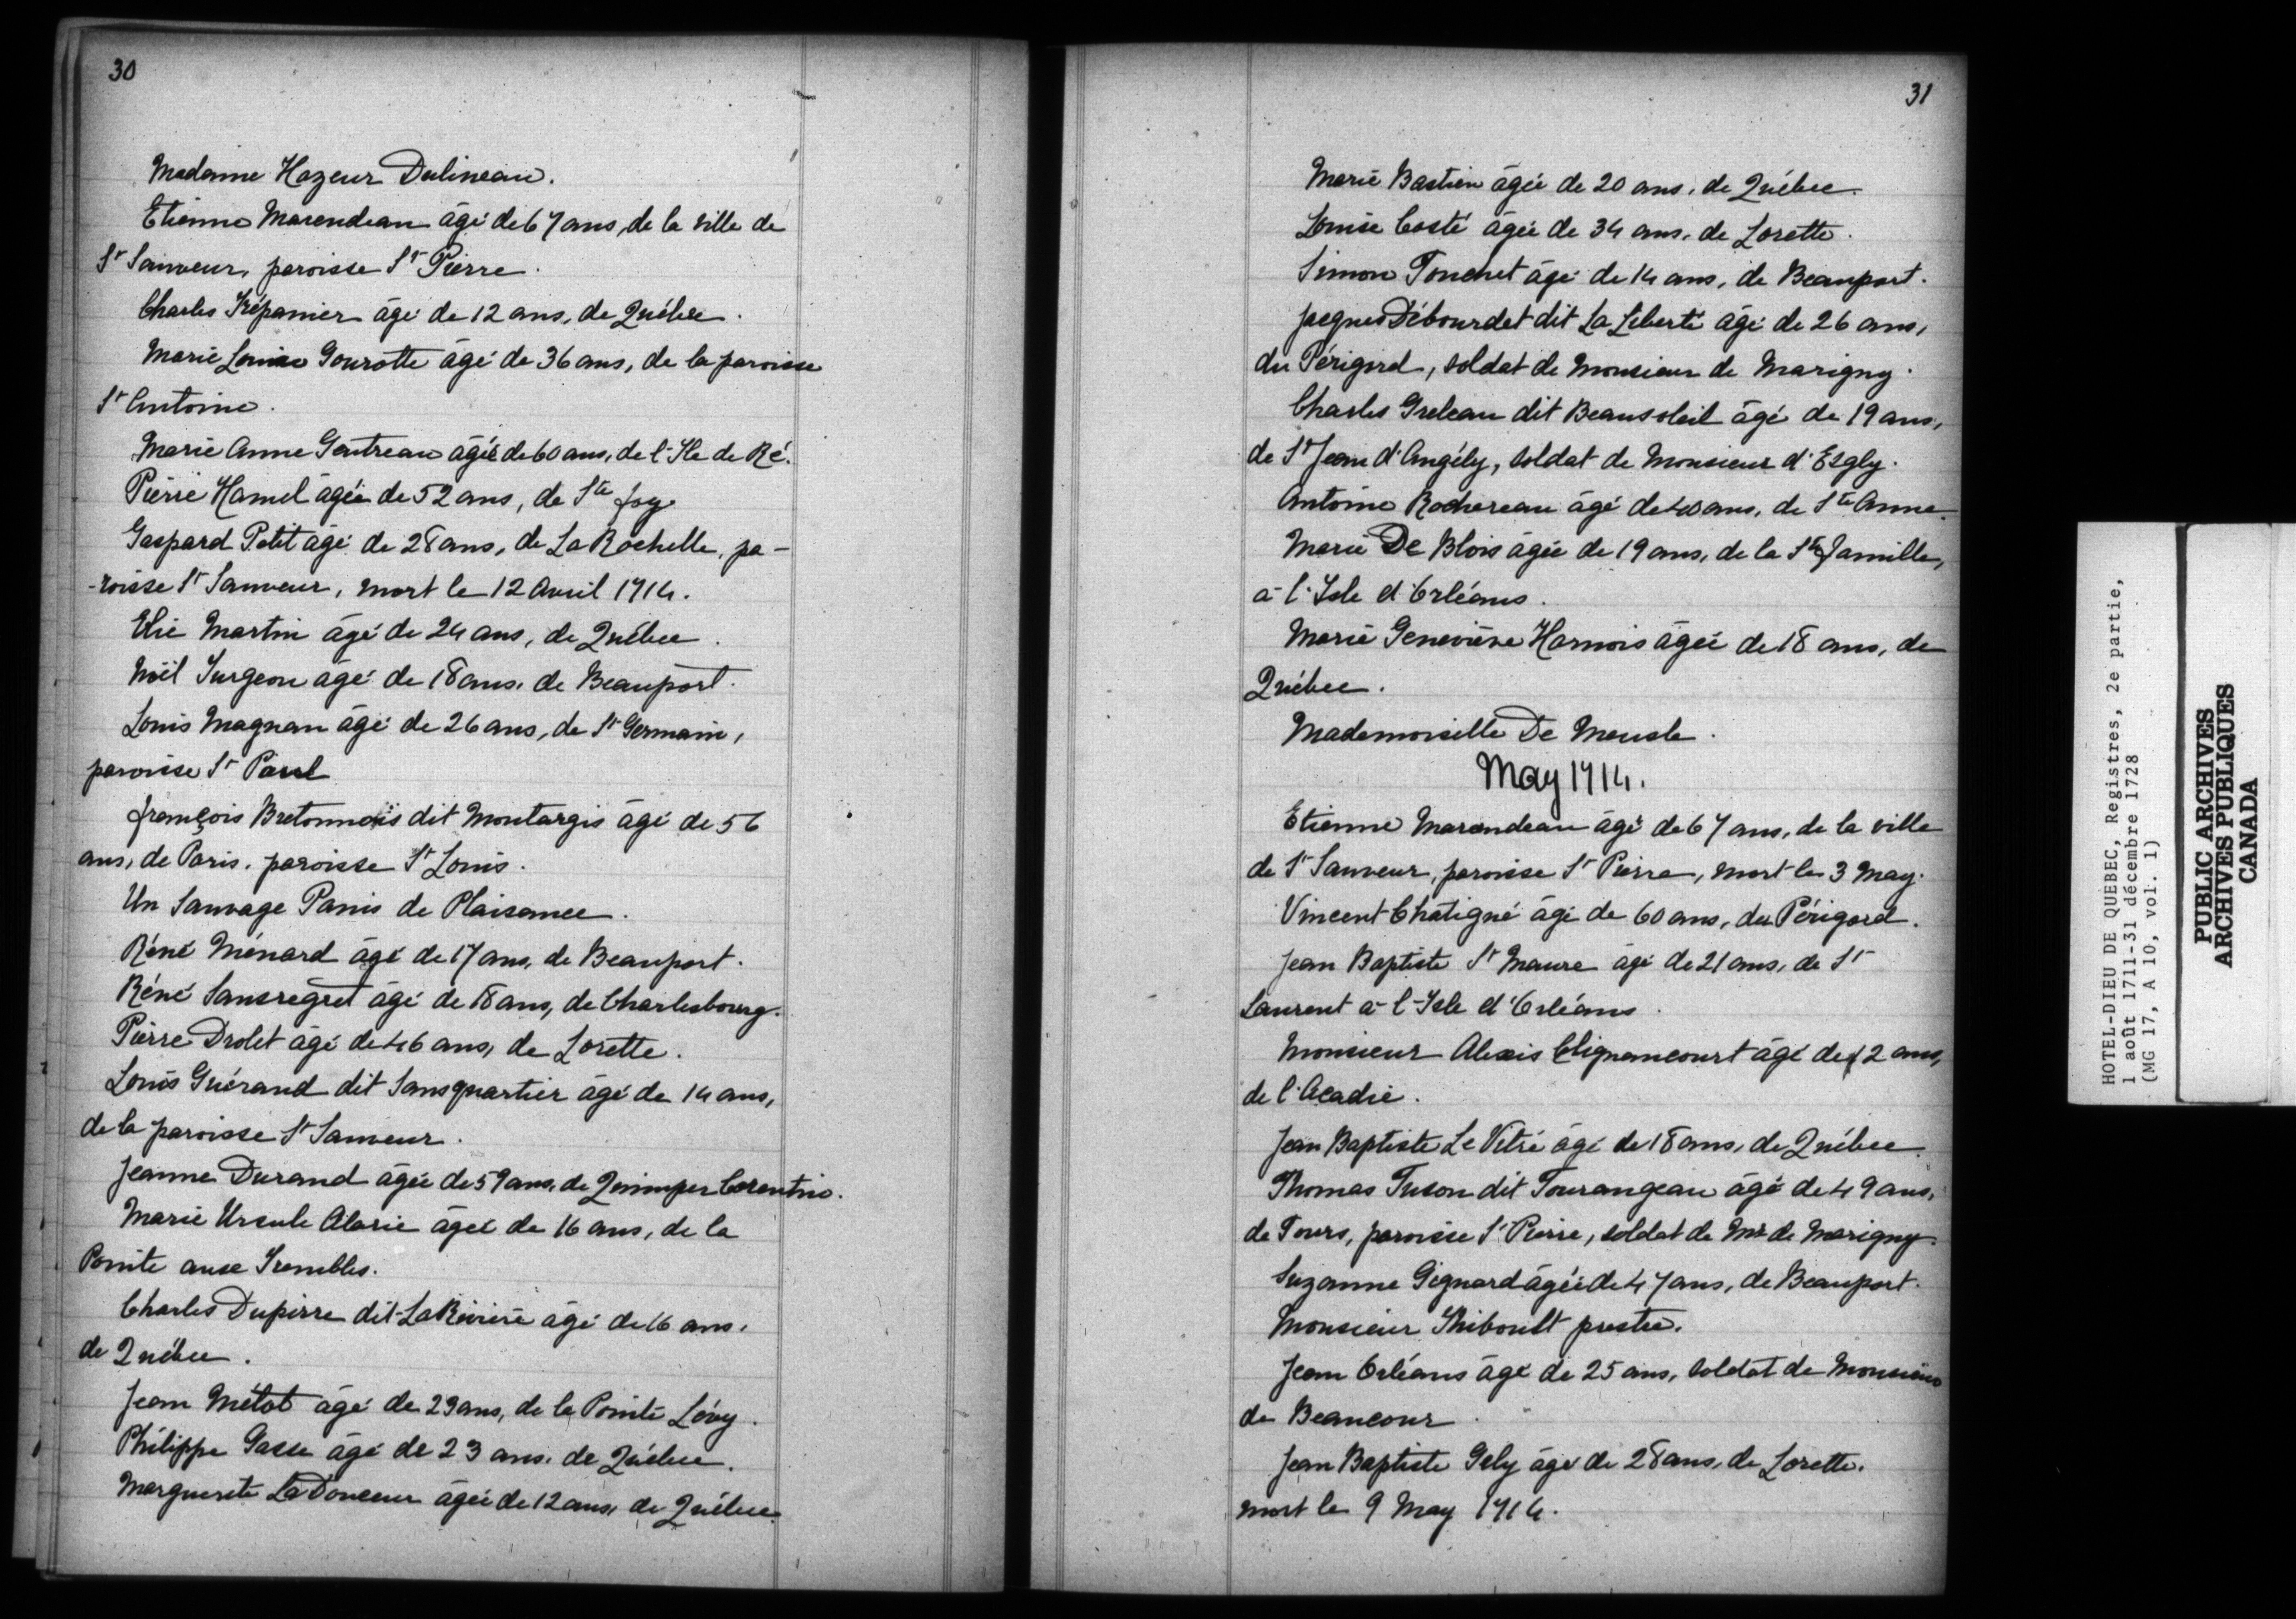 30
Madame Hazeur Dulineau.
Etienne Marendeau âgé de 67 ans, de la ville de
St Sauveur, paroisse St Pierre.
Charles Trépanier âgé de 12 ans, de Québec.
Marie Louise Gourotte âgé de 36 ans, de la paroisse
St Antoine.
Marie Anne Gentreau âgée de 60 ans, de l'Ile de Ré.
Pierre Hamel âgée de 52 ans, de Ste foy
Gaspard Petit âgé de 28 ans, de La Rochelle, pa-
-roisse St Sauveur, mort le 12 Avril 1714.
Elie Martin âgé de 24 ans, de Québec.
Noël Turgeon âgé de 18 ans, de Beauport.
Louis Magnan âgé de 26 ans, de St Germain,
paroisse St Paul
françois Bretonnois dit Montargis âgé de 56
ans, de Paris, paroisse St Louis.
Un Sauvage Panis de Plaisance.
Réné Ménard âgé de 17 ans, de Beauport.
Réné Sansregret âgé de 18 ans, de Charlesbourg.
Pierre Drolet âgé de 46 ans, de Lorette.
Louis Guérand dit Sansquartier âgé de 14 ans,
de la paroisse St Sauveur.
Jeanne Durand âgée de 59 ans, de Quimper Corentin.
Marie Ursule Alarie âgée de 16 ans, de la
Pointe aux Trembles.
Charles Dupirre dit LaRivière âgé de 16 ans,
de Québec.
Jean Métot âgé de 29 ans, de la Pointe Lévy.
Philippe Gasse âgé de 23 ans, de Québec.
Marguerite La Douceur âgée de 12 ans, de Québec.
31
Marie Bastien âgée de 20 ans, de Québec.
Louise Costé âgée de 34 ans, de Lorette.
Simon Touchet âgé de 14 ans, de Beauport.
Jacques Débourdet dit La Liberté âgé de 26 ans,
du Périgord, soldat de Monsieur de Marigny.
Charles Greleau dit Beausoleil âgé de 19 ans,
de St Jean d'Angély, soldat de Monsieur d'Esgly.
Antoine Rochereau âgé de 40 ans, de Ste Anne.
Marie De Blois âgée de 19 ans, de la Ste Famille,
à l'Isle d'Orléans.
Marie Geneviève Harnois âgée de 18 ans, de
Québec.
Mademoiselle De Meusle.
May 1714.
Etienne Marandeau âgé de 67 ans, de la ville
de St Sauveur, paroisse St Pierre, mort le 3 May.
Vincent Chatigné âgé de 60 ans, du Périgord.
Jean Baptiste St Maure âgé de 21 ans, de St
Laurent à l'Isle d'Orléans.
Monsieur Alexis Clignancourt âgé de 2 ans,
de l'Acadie.
Jean Baptiste Le Vitré âgé de 18 ans, de Québec.
Thomas Tuson dit Tourangeau âgé de 49 ans,
de Tours, paroisse St Pierre, soldat de Mr de Marigny.
Suzanne Gignard âgée de 47 ans, de Beauport.
Monsieur Thiboult prestre.
Jean Orléans âgé de 25 ans, soldat de Monsieur
de Beaucour.
Jean Baptiste Gely âgé de 28 ans, de Lorette.
mort le 9 May 1714.
HOTEL-DIEU DE QUEBEC, Registres, 2e partie,
1 août 1711-31 décembre 1728
(MG 17, A 10, vol. 1)
PUBLIC ARCHIVES
ARCHIVES PUBLIQUES
CANADA